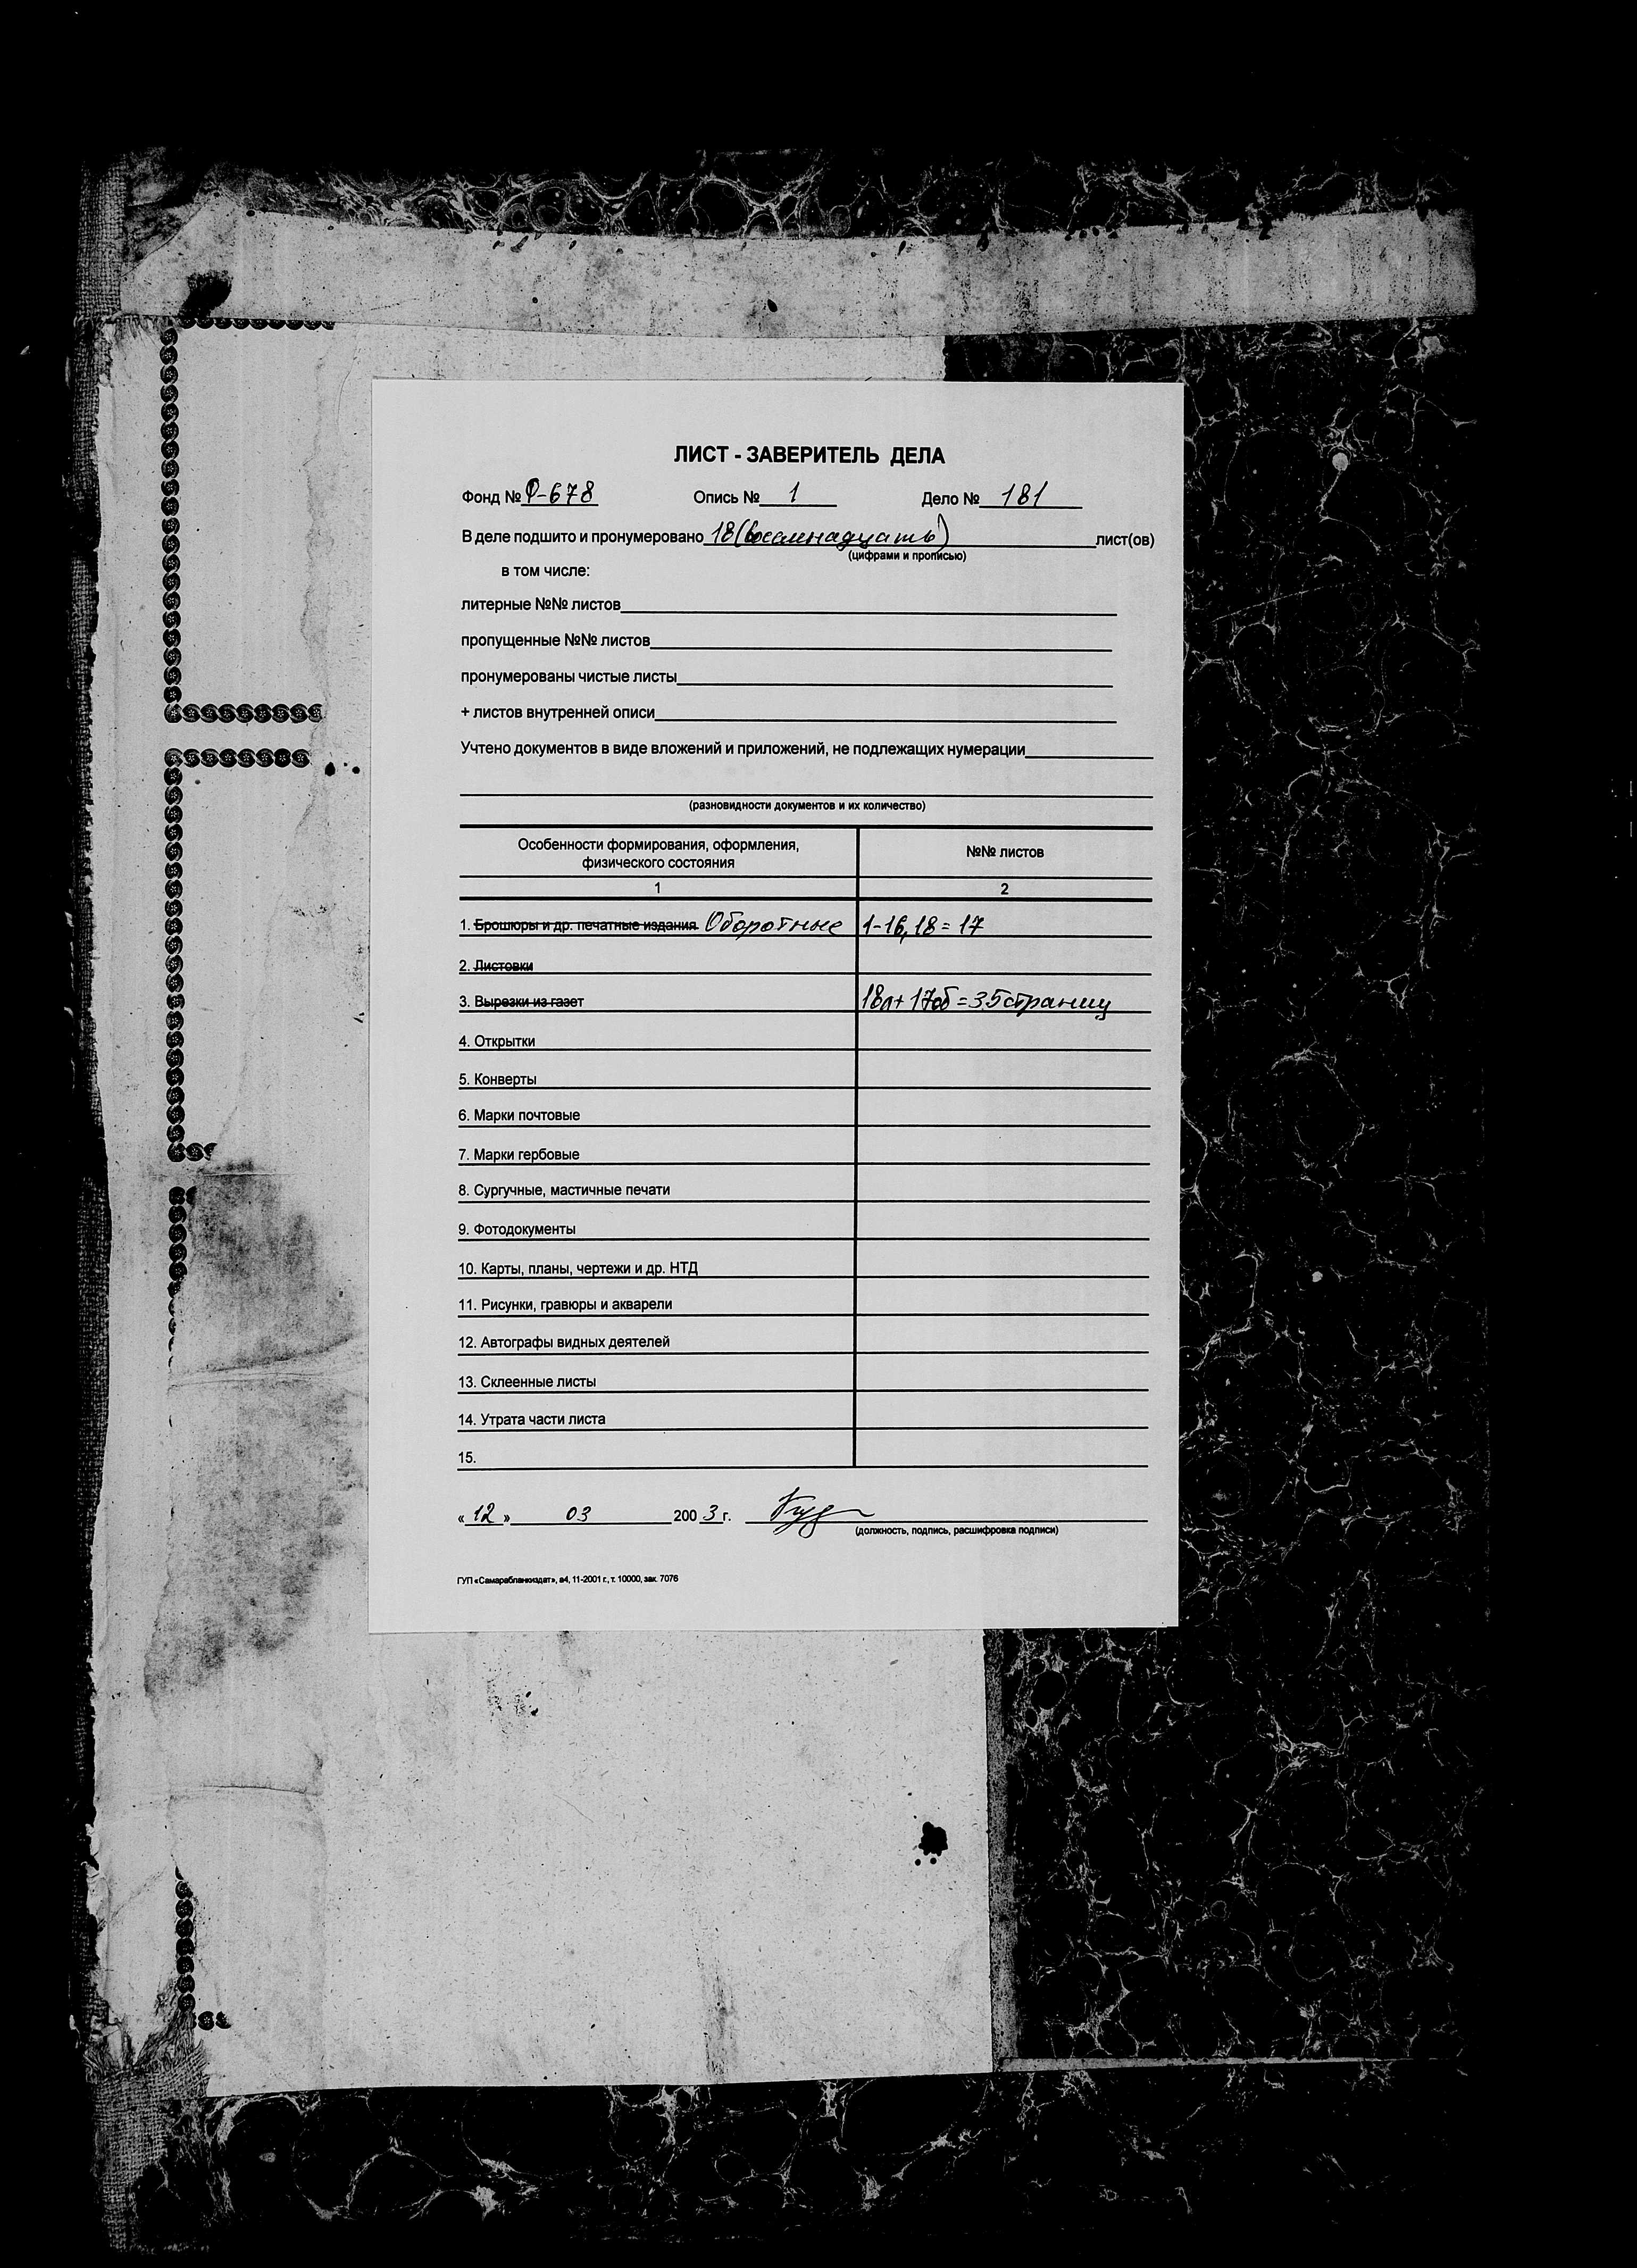 ЛИСТ - ЗАВЕРИТЕЛЬ ДЕЛА
Фонд № Р-678 Опись № 1 Дело № 181
В деле подшито и пронумеровано 18 (восемнадцать) лист(ов)
(цифрами и прописью)
в том числе:
литерные №№ листов
пропущенные №№ листов
пронумерованы чистые листы
+ листов внутренней описи
Учтено документов в виде вложений и приложений, не подлежащих нумерации
(разновидности документов и их количество)
Особенности формирования, оформления, физического состояния №№ листов
1 2
1. Брошюры и др. печатные издания Оборотные 1-16, 18 = 17
2. Листовки
3. Вырезки из газет 18л + 17об = 35 страниц
4. Открытки
5. Конверты
6. Марки почтовые
7. Марки гербовые
8. Сургучные, мастичные печати
9. Фотодокументы
10. Карты, планы, чертежи и др. НТД
11. Рисунки, гравюры и акварели
12. Автографы видных деятелей
13. Склеенные листы
14. Утрата части листа
15.
« 12 » 03 200 3 г.
(должность, подпись, расшифровка подписи)
ГУП «Самарабланкиздат», а4, 11-2001 г., т. 10000, зак. 7076